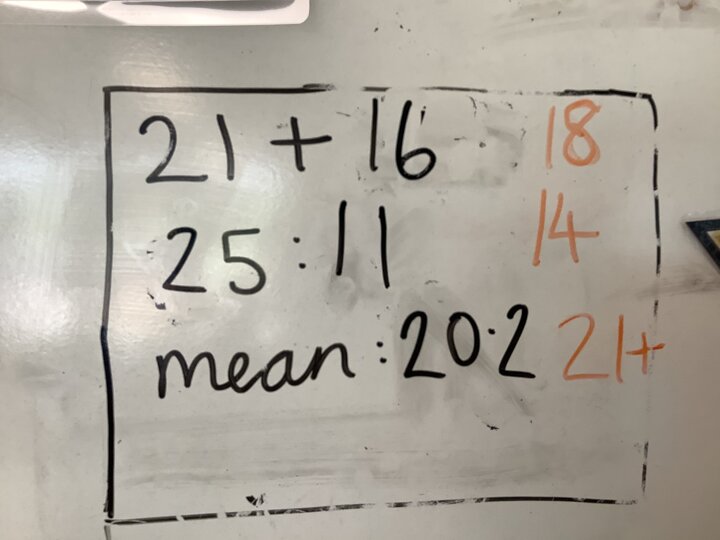 21 + 16 18
25:11 14
mean: 20.2 21+